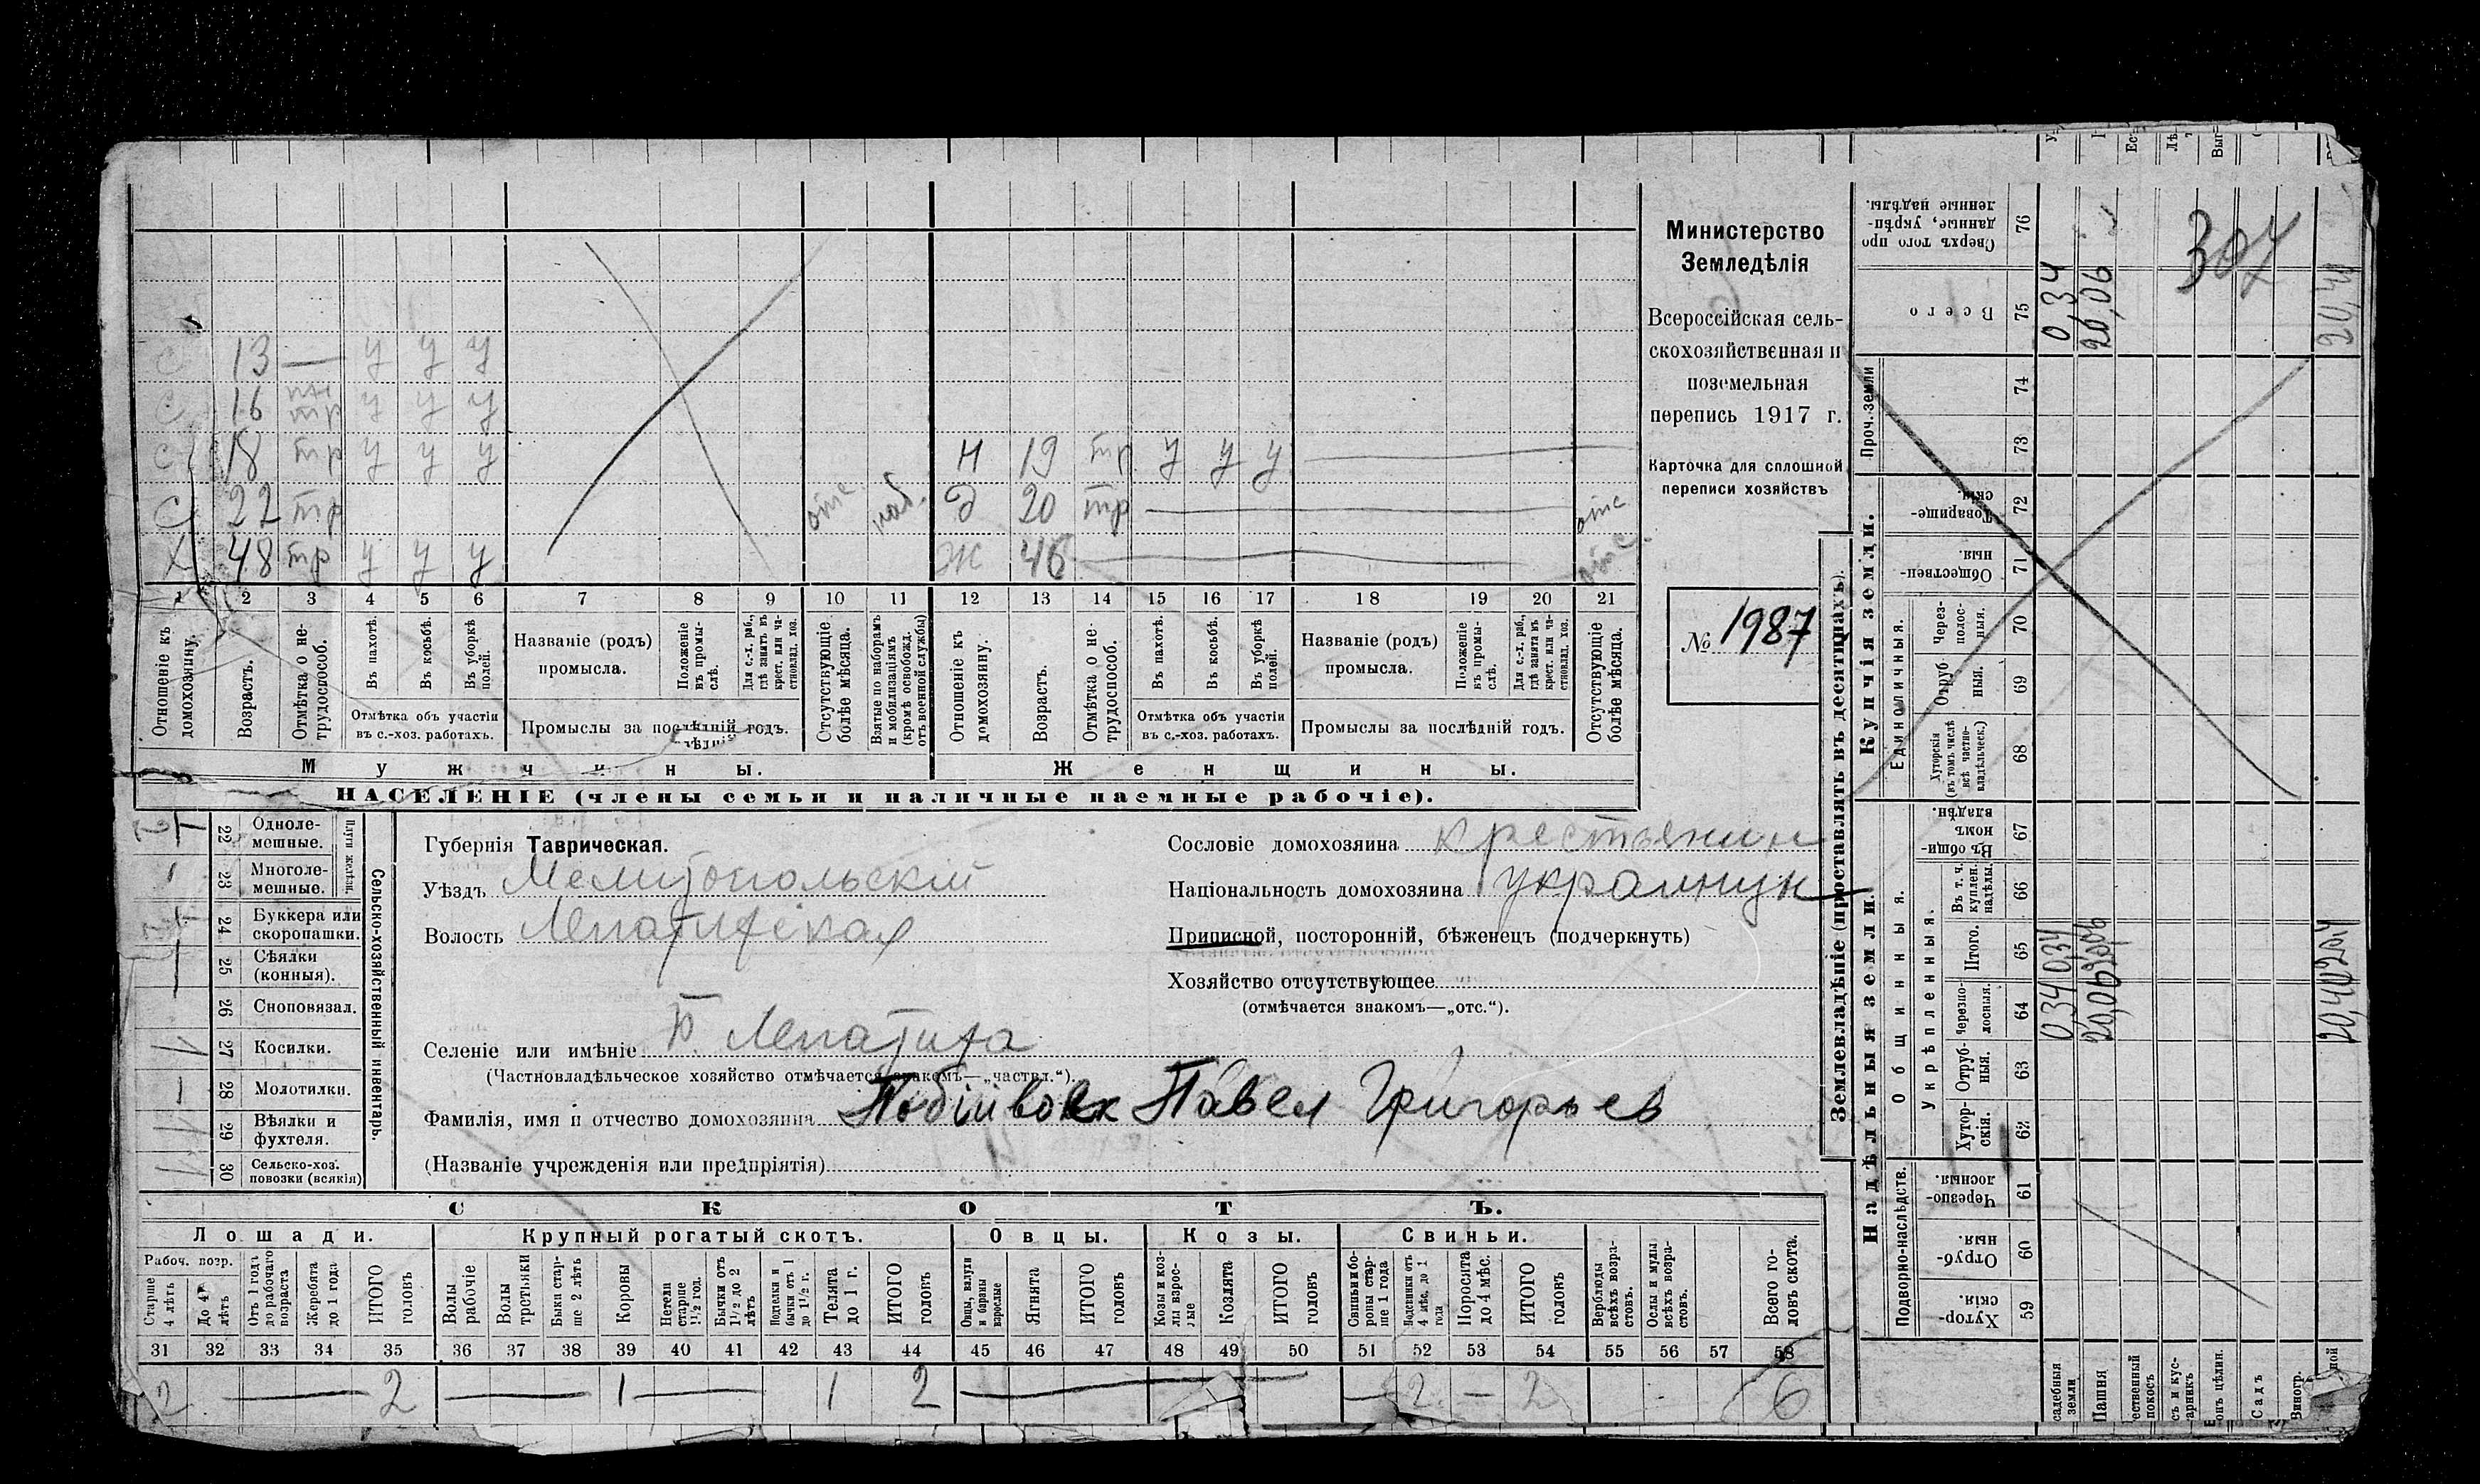 Министерство
Земледѣлія
Всероссійская сель-
скохозяйственная и
поземельная
перепись 1917 г.
Карточка для сплошной
переписи хозяйствъ
№ 1987
С 13 — у у у
С 16 тр у у у
С 18 тр у у у Н 19 тр у у у
С 22 тр отс. Д 20 тр отс
Х 48 тр у у у Ж 46 отс.
1 2 3 4 5 6 7 8 9 10 11 12 13 14 15 16 17 18 19 20 21
Отношеніе къ домохозяину.
Возрастъ.
Отмѣтка о не-трудоспособ.
Въ пахотѣ.
Въ косьбѣ.
Въ уборкѣ полей.
Отмѣтка объ участіи
въ с.-хоз. работахъ.
Названіе (родъ)
промысла.
Положеніе въ промы-слѣ.
Для с.-х. раб., гдѣ занятъ въ крест. или ча-стновлад. хоз.
Промыслы за послѣдній годъ.
Отсутствующіе болѣе мѣсяца.
Взятые по наборамъ и мобилизаціямъ (кромѣ освобожд. отъ военной службы)
Отношеніе къ домохозяину.
Возрастъ.
Отмѣтка о не-трудоспособ.
Въ пахотѣ.
Въ косьбѣ.
Въ уборкѣ полей.
Отмѣтка объ участіи
въ с.-хоз. работахъ.
Названіе (родъ)
промысла.
Положеніе въ промы-слѣ.
Для с.-х. раб., гдѣ занятъ въ крест. или ча-стновлад. хоз.
Промыслы за послѣдній годъ.
Отсутствующіе болѣе мѣсяца.
Мужчины. Женщины.
НАСЕЛЕНІЕ (члены семьи и наличные наемные рабочіе).
22 Одноле-мешные.
23 Многоле-мешные.
Плуги желѣзн.
24 Буккера или скоропашки.
25 Сѣялки (конныя).
26 Сноповязал.
27 Косилки. 1
28 Молотилки.
29 Вѣялки и фухтеля.
30 Сельско-хоз. повозки (всякія)
Сельско-хозяйственный инвентарь.
Губернія Таврическая.
Уѣздъ Мелитопольскій
Волость Лепатихская
Селеніе или имѣніе Б Лепатиха
(Частновладѣльческое хозяйство отмѣчается знакомъ—„частвл.“).
Фамилія, имя и отчество домохозяина Побійвовк Павел Григорьев
(Названіе учрежденія или предпріятія)
Сословіе домохозяина крестьянин
Національность домохозяина украинцж
Приписной, посторонній, бѣженецъ (подчеркнуть)
Хозяйство отсутствующее
(отмѣчается знакомъ—„отс.“).
СКОТЪ.
Лошади. Крупный рогатый скотъ. Овцы. Козы. Свиньи.
Рабоч. возр.
Старше 4 лѣтъ
До 4 лѣтъ
Отъ 1 года до рабочаго возраста
Жеребята до 1 года
ИТОГО головъ
Волы рабочіе
Волы третьяки
Быки стар-ше 2 лѣтъ
Коровы
Нетели старше 1½ год.
Бычки отъ 1½ до 2 лѣтъ
Подтелки и бычки отъ 1 до 1½ г.
Телята до 1 г.
ИТОГО головъ
Овцы, валухи и бараны взрослые
Ягнята
ИТОГО головъ
Козы и коз-лы взрос-лые
Козлята
ИТОГО головъ
Свиньи и бо-ровы стар-ше 1 года
Подсвинки отъ 4 мѣс. до 1 года
Поросята до 4 мѣс.
ИТОГО головъ
Верблюды всѣхъ возра-стовъ.
Ослы и мулы всѣхъ возра-стовъ.
Всего го-ловъ скота.
31 32 33 34 35 36 37 38 39 40 41 42 43 44 45 46 47 48 49 50 51 52 53 54 55 56 57 58
2 — 2 — 1 — 1 2 — — 2 — 2 6
Землевладѣніе (проставлять въ десятинахъ).
Надѣльныя земли. Купчія земли. Проч. земли
Подворно-наслѣдств.
Хутор-скія. 59
Отруб-ныя. 60
Черезпо-лосныя. 61
Общинныя.
Укрѣпленныя.
Хутор-скія. 62
Отруб-ныя. 63
Черезпо-лосныя. 64
Итого. 65
Въ т. ч. куплен. надѣлы. 66
Въ общи-номъ владѣн. 67
Единоличныя.
Хуторскія (въ томъ числѣ всѣ частно-владѣльческ.) 68
Отруб-ныя. 69
Через-полос-ныя. 70
Обществен-ныя. 71
Товарище-скія. 72
73
74
Всего 75
Сверхъ того про-данные, укрѣп-ленные надѣлы. 76
садебныя земли 0,34 0,34 0,34
Пашня 20,06 20,06 20,06
ественный покосъ
Садъ
Виногр.
20,40 20,40
307